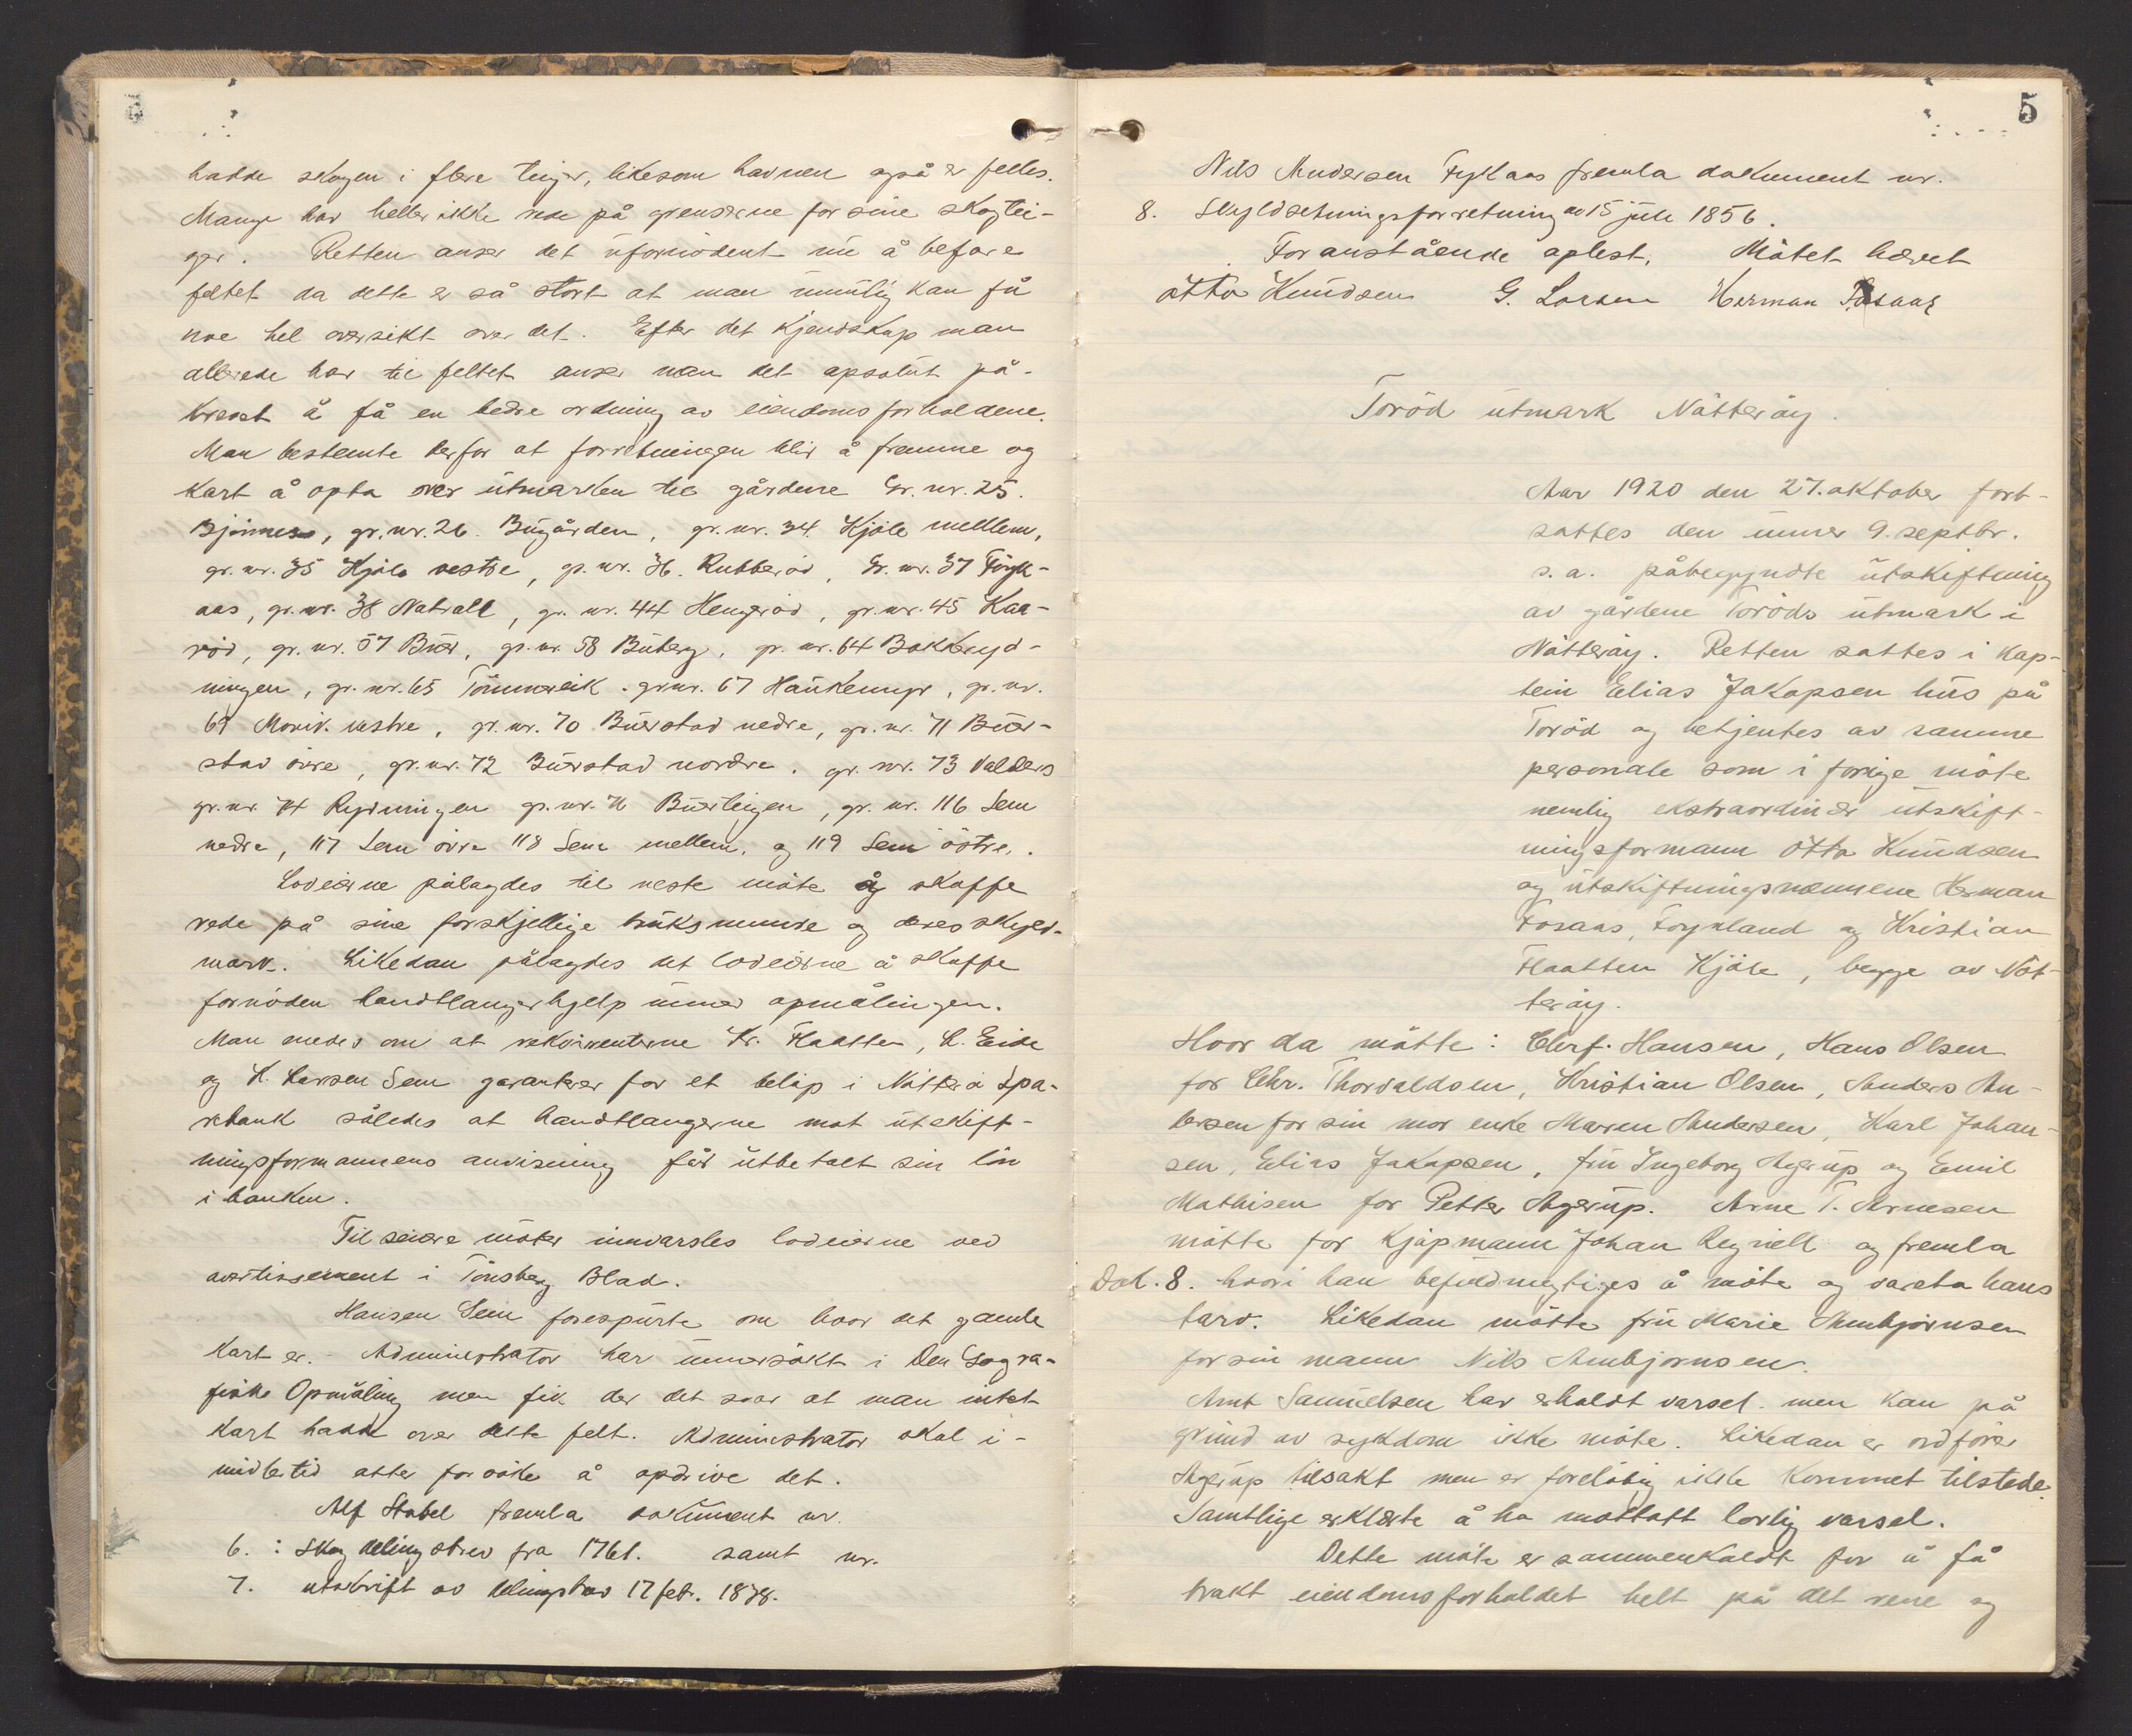 hadde skogen i flere teiger, likesom havnen også er felles.
Mange har heller ikke rede på grensene for sine skogtei-
ger. Retten anser det ufornødent nu å befare
feltet da dette er så stort at man umulig kan få
noe hel oversikt over det. Efter det kjendskap man
allerede har til feltet anser man det apsolut på-
krevet å få en bedre ordning av eiendomsforholdene.
Man bestemte derfor at forretningen blir å fremme og
kart å opta over utmarken til gårdene Gr. nr. 25.
Bjønnes, gr. nr. 26. Bugården, gr. nr. 34. Kjøle mellem,
gr. nr. 35 Kjøle vestre, gr. nr. 36. Rubberød, Gr. nr. 37 Föyk-
aas, gr. nr. 38 Natvall, gr. nr. 44 Hengerød, gr. nr. 45 Kaa-
rød, gr. nr. 57 Buer, gr. nr. 58 Buberg, gr. nr. 64 Bakkeryd-
ningen, gr. nr. 65 Tömmereik. gr. nr. 67 Haukemyr, gr. nr.
69 Moriv. vestre, gr. nr. 70 Buerstad nedre, gr. nr. 71 Buer-
stad övre, gr. nr. 72 Buerstad nordre. gr. nr. 73 Valders
gr. nr. 74 Rydningen gr. nr. 76 Buerteigen, gr. nr. 116 Sem
nedre, 117 Sem övre 118 Sem mellem, og 119 Sem östre.
Lodeierne pålagdes til neste möte å skaffe
rede på sine forskjellige bruksnumre og deres skyld-
mark. Likedan pålagdes det lodeierne å skaffe
fornøden handtlangerhjelp under opmålingen.
Man enedes om at rekvirenterne Kr. Flaatten, L. Eide
og H. Larsen Sem garanterer for et beløp i Nøtterø Spa-
rebank således at handtlangerne mot utskift-
ningsformannens anvisning får utbetalt sin lön
i banken.
Til senere möter innvarsles lodeierne ved
avertissement i Tönsberg Blad.
Hansen Sem forespurte om hvor det gamle
kart er. Administrator har undersøkt i Den Geogra-
fiske Opmåling men fik der det svar at man intet
kart hadde over dette felt. Administrator skal i-
midlertid atter forsøke å opdrive det.
Alf Stabel fremla dokument nr.
6. : Skogdelingsbrev fra 1761. samt nr.
7. utskrift av delingsbrev 17 febr. 1838.
5
Nils Andersen Fyklaas fremla dokument nr.
8. Skyldsetningsforretning av 15 juli 1856.
Foranstående oplest. Mötet hævet
Otto Knudsen G. Larsen Herman Fosaas
Toröd utmark Nötteröy.
Aar 1920 den 27. oktober fort-
sattes den under 9. septbr.
s. a. påbegyndte utskiftning
av gårdene Toröds utmark i
Nötteröy. Retten sattes i kap-
tein Elias Jakopsen hus på
Toröd og betjentes av samme
personale som i forrige möte
nemlig ekstraordinær utskift-
ningsformann Otto Knudsen
og utskiftningsmennene Herman
Fosaas, Foynland og Kristian
Flaatten Kjöle, begge av Nöt-
teröy.
Hvor da mötte: Chrf. Hansen, Hans Olsen
for Chr. Thorvaldsen, Kristian Olsen, Anders An-
dersen for sin mor enke Maren Andersen, Karl Johan-
sen, Elias Jakopsen, fru Ingeborg Agerup og Emil
Mathisen for Petter Agerup. Arne T. Arnesen
mötte for Kjøpmann Johan Regnell og fremla
Dok. 8. hvori han befuldmegtiges å möte og vareta hans
tarv. Likedan mötte fru Marie Arnbjørnsen
for sin mann Nils Arnbjørnsen.
Amt Samuelsen har erholdt varsel. men kan på
grund av sykdom ikke möte. Likedan er ordfører
Agerup tilsakt men er foreløbig ikke kommet tilstede.
Samtlige erklærte å ha mottatt lovlig varsel.
Dette möte er sammenkaldt for å få
brakt eiendomsforholdet helt på det rene og